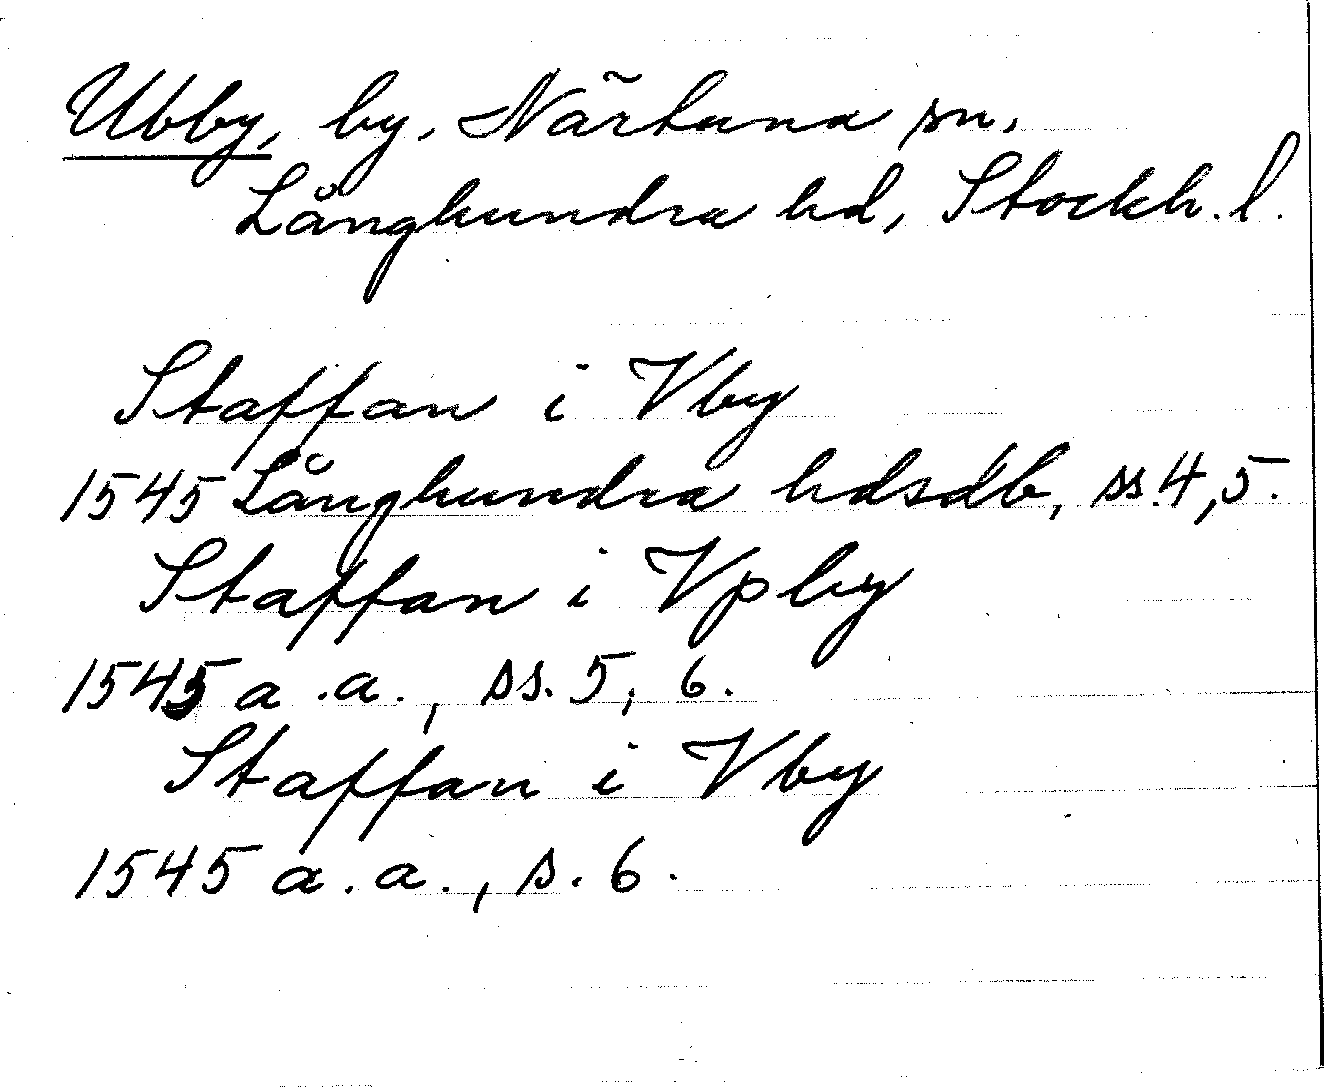 Ubby, by, Närtuna sn,
Långhundra hd, Stockh. l.
Staffan i Vby
1545 Långhundra hdsdb, ss. 4, 5.
Staffan i Vpby
1545 a. a., ss. 5, 6.
Staffan i Vby
1545 a. a., s. 6.